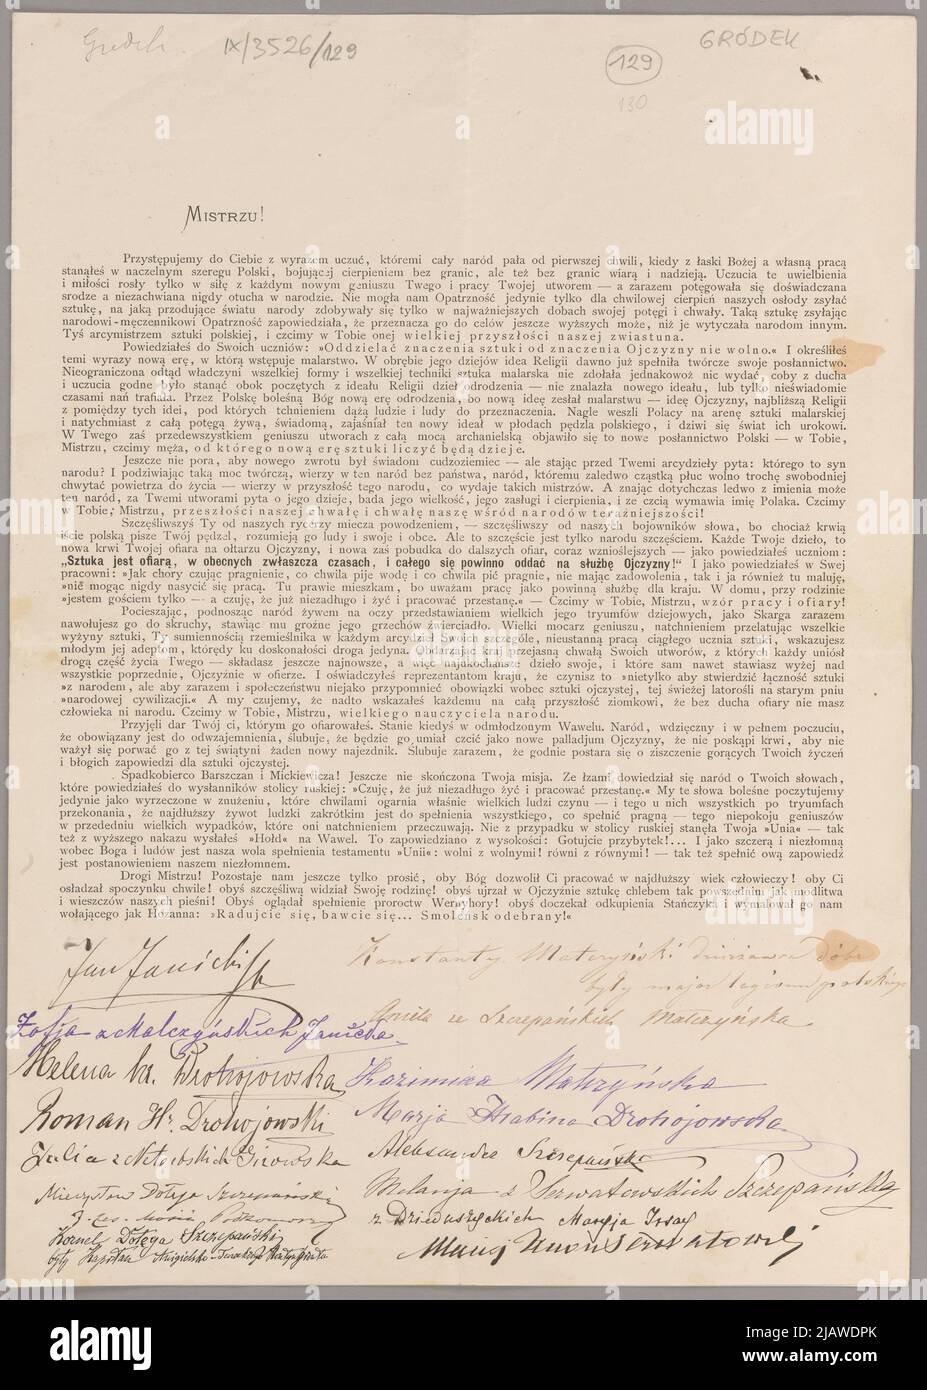 Gródek IX/3526/129
129
130
GRÓDEK
MISTRZU!
Przystępujemy do Ciebie z wyrazem uczuć, któremi cały naród pała od pierwszej chwili, kiedy z łaski Bożej a własną pracą
stanąłeś w naczelnym szeregu Polski, bojującej cierpieniem bez granic, ale też bez granic wiarą i nadzieją. Uczucia te uwielbienia
i miłości rosły tylko w siłę z każdym nowym geniuszu Twego i pracy Twojej utworem — a zarazem potęgowała się doświadczana
srodze a niezachwiana nigdy otucha w narodzie. Nie mogła nam Opatrzność jedynie tylko dla chwilowej cierpień naszych osłody zsyłać
sztukę, na jaką przodujące światu narody zdobywały się tylko w najważniejszych dobach swojej potęgi i chwały. Taką sztukę zsyłając
narodowi-męczennikowi Opatrzność zapowiedziała, że przeznacza go do celów jeszcze wyższych może, niż je wytyczała narodom innym.
Tyś arcymistrzem sztuki polskiej, i czcimy w Tobie onej wielkiej przyszłości naszej zwiastuna.
Powiedziałeś do Swoich uczniów: »Oddzielać znaczenia sztuki od znaczenia Ojczyzny nie wolno.« I określiłeś
temi wyrazy nową erę, w którą wstępuje malarstwo. W obrębie jego dziejów idea Religii dawno już spełniła twórcze swoje posłannictwo.
Nieograniczona odtąd władczyni wszelkiej formy i wszelkiej techniki sztuka malarska nie zdołała jednakowoż nic wydać, coby z ducha
i uczucia godne było stanąć obok poczętych z ideału Religii dzieł odrodzenia — nie znalazła nowego ideału, lub tylko nieświadomie
czasami nań trafiała. Przez Polskę bolesną Bóg nową erę odrodzenia, bo nową ideę zesłał malarstwu — ideę Ojczyzny, najbliższą Religii
z pomiędzy tych idei, pod których tchnieniem dążą ludzie i ludy do przeznaczenia. Nagle weszli Polacy na arenę sztuki malarskiej
i natychmiast z całą potęgą żywą, świadomą, zajaśniał ten nowy ideał w płodach pędzla polskiego, i dziwi się świat ich urokowi.
W Twego zaś przedewszystkiem geniuszu utworach z całą mocą archanielską objawiło się to nowe posłannictwo Polski — w Tobie,
Mistrzu, czcimy męża, od którego nową erę sztuki liczyć będą dzieje.
Jeszcze nie pora, aby nowego zwrotu był świadom cudzoziemiec — ale stając przed Twemi arcydziełý pyta: którego to syn
narodu? I podziwiając taką moc twórczą, wierzy w ten naród bez państwa, naród, któremu zaledwo cząstką płuc wolno trochę swobodniej
chwytać powietrza do życia — wierzy w przyszłość tego narodu, co wydaje takich mistrzów. A znając dotychczas ledwo z imienia może
ten naród, za Twemi utworami pyta o jego dzieje, bada jego wielkość, jego zasługi i cierpienia, i ze czcią wymawia imię Polaka. Czcimy
w Tobie, Mistrzu, przeszłości naszej chwałę i chwałę naszę wśród narodów teraźniejszości!
Szczęśliwszyś Ty od naszych rycerzy miecza powodzeniem, — szczęśliwszy od naszych bojowników słowa, bo chociaż krwią
iście polską pisze Twój pędzel, rozumieją go ludy i swoje i obce. Ale to szczęście jest tylko narodu szczęściem. Każde Twoje dzieło, to
nowa krwi Twojej ofiara na ołtarzu Ojczyzny, i nowa zaś pobudka do dalszych ofiar, coraz wznioślejszych — jako powiedziałeś uczniom:
„Sztuka jest ofiarą, w obecnych zwłaszcza czasach, i całego się powinno oddać na służbę Ojczyzny!" I jako powiedziałeś w Swej
pracowni: »Jak chory czując pragnienie, co chwila pije wodę i co chwila pić pragnie, nie mając zadowolenia, tak i ja również tu maluję,
»nie mogąc nigdy nasycić się pracą. Tu prawie mieszkam, bo uważam pracę jako powinną służbę dla kraju. W domu, przy rodzinie
»jestem gościem tylko — a czuję, że już niezadługo i żyć i pracować przestanę.« — Czcimy w Tobie, Mistrzu, wzór pracy i ofiary!
Pocieszając, podnosząc naród żywem na oczy przedstawianiem wielkich jego tryumfów dziejowych, jako Skarga zarazem
nawołujesz go do skruchy, stawiąc mu groźne jego grzechów źwierciadło. Wielki mocarz geniuszu, natchnieniem przelatując wszelkie
wyżyny sztuki, Ty sumiennością rzemieślnika w każdym arcydzieł Swoich szczególe, nieustanną pracą ciągłego ucznia sztuki, wskazujesz
młodym jej adeptom, którędy ku doskonałości droga jedyna. Obdarzając kraj przejasną chwałą Swoich utworów, z których każdy uniósł
drogą część życia Twego — składasz jeszcze najnowsze, a więc najukochańsze dzieło swoje, i które sam nawet stawiasz wyżej nad
wszystkie poprzednie, Ojczyźnie w ofierze. I oświadczyłeś reprezentantom kraju, że czynisz to »nietylko aby stwierdzić łączność sztuki
»z narodem, ale aby zarazem i społeczeństwu niejako przypomnieć obowiązki wobec sztuki ojczystej, tej świeżej latorośli na starym pniu
»narodowej cywilizacji.« A my czujemy, że nadto wskazałeś każdemu na całą przyszłość ziomkowi, że bez ducha ofiary nie masz
człowieka ni narodu. Czcimy w Tobie, Mistrzu, wielkiego nauczyciela narodu.
Przyjęli dar Twój ci, którym go ofiarowałeś. Stanie kiedyś w odmłodzonym Wawelu. Naród, wdzięczny i w pełnem poczuciu,
że obowiązany jest do odwzajemnienia, ślubuje, że będzie go umiał czcić jako nowe palladjum Ojczyzny, że nie poskąpi krwi, aby nie
ważył się porwać go z tej świątyni żaden nowy najezdnik. Ślubuje zarazem, że godnie postara się o ziszczenie gorących Twoich życzeń
i błogich zapowiedzi dla sztuki ojczystej.
Spadkobierco Barszczan i Mickiewicza! Jeszcze nie skończona Twoja misja. Ze łzami dowiedział się naród o Twoich słowach,
które powiedziałeś do wysłanników stolicy ruskiej: »Czuję, że już niezadługo żyć i pracować przestanę.« My te słowa boleśne poczytujemy
jedynie jako wyrzeczone w znużeniu, które chwilami ogarnia właśnie wielkich ludzi czynu — i tego u nich wszystkich po tryumfach
przekonania, że najdłuższy żywot ludzki zakrótkim jest do spełnienia wszystkiego, co spełnić pragną — tego niepokoju geniuszów
w przededniu wielkich wypadków, które oni natchnieniem przeczuwają. Nie z przypadku w stolicy ruskiej stanęła Twoja »Unia« — tak
też z wyższego nakazu wysłałeś »Hołd« na Wawel. To zapowiedziano z wysokości: Gotujcie przybytek!... I jako szczerą i niezłomną
wobec Boga i ludów jest nasza wola spełnienia testamentu »Unii«: wolni z wolnymi! równi z równymi! — tak też spełnić ową zapowiedź
jest postanowieniem naszem niezłomnem.
Drogi Mistrzu! Pozostaje nam jeszcze tylko prosić, aby Bóg dozwolił Ci pracować w najdłuższy wiek człowieczy! oby Ci
osładzał spoczynku chwile! obyś szczęśliwą widział Swoję rodzinę! obyś ujrzał w Ojczyźnie sztukę chlebem tak powszednim jak modlitwa
i wieszczów naszych pieśni! Obyś oglądał spełnienie proroctw Wernyhory! obyś doczekał odkupienia Stańczyka i wymalował go nam
wołającego jak Hozanna: »Radujcie się, bawcie się... Smoleńsk odebrany!«
Jan Janicki
Konstanty Matczyński dzierżawca dóbr
były major legionu polskiego
Zofja z Malczyńskich Janicka
Aniela ze Szczepańskich Matczyńska
Helena hr. Drohojowska
Kazimira Matczyńska
Roman Hr. Drohojowski
Marja Hrabina Drohojowska
Julia z Gizowska
Aleksandra Szczepańska
Mieczysław Dołęga Szczepański
Melanja z Serwatowskich Szczepańska
z Dzieduszyckich Maryja
Kornel Dołęga Szczepański
były Kapitan
alamy
Image ID: 2JAWDPK
www.alamy.com